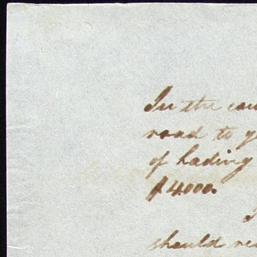 In the cou
road to y
of hading
$4000.
should re